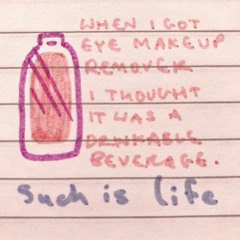 WHEN I GOT
EYE MAKEUP
REMOVER
I THOUGHT
IT WAS A
DRINKABLE
BEVERAGE.
Such is life